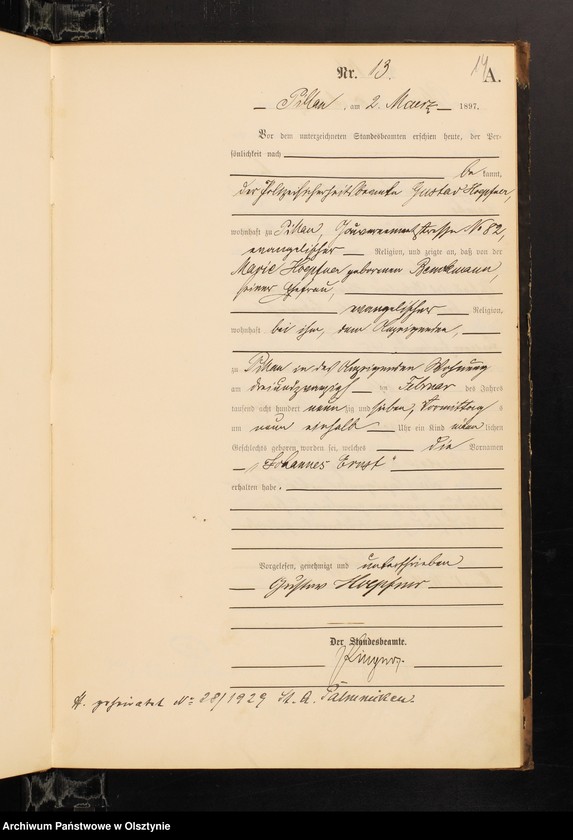 Nr. 13.
14
A.
Pillau, am 2. Maerz 1897.
Vor dem unterzeichneten Standesbeamten erschien heute, der Per-
sönlichkeit nach
be kannt,
der Gustav Hoepfner,
wohnhaft zu Pillau, Gouvernementstrasse No 82,
evangelischer Religion, und zeigte an, daß von der
Marie Hoepfner geborenen
seiner Ehefrau,
evangelischer Religion,
wohnhaft bei ihm, dem Anzeigenden,
zu Pillau in des Anzeigenden Wohnung
am dreiundzwanzigsten Februar des Jahres
tausend acht hundert neunzig und sieben, Vormittags
um neun einhalb Uhr ein Kind männlichen
Geschlechts geboren worden sei, welches die Vornamen
„Johannes Ernst"
erhalten habe.
Vorgelesen, genehmigt und unterschrieben
Gustav Hoepfner
Der Standesbeamte.
H. geheiratet No 28/1929 St. A. Palmnicken.
Archiwum Państwowe w Olsztynie